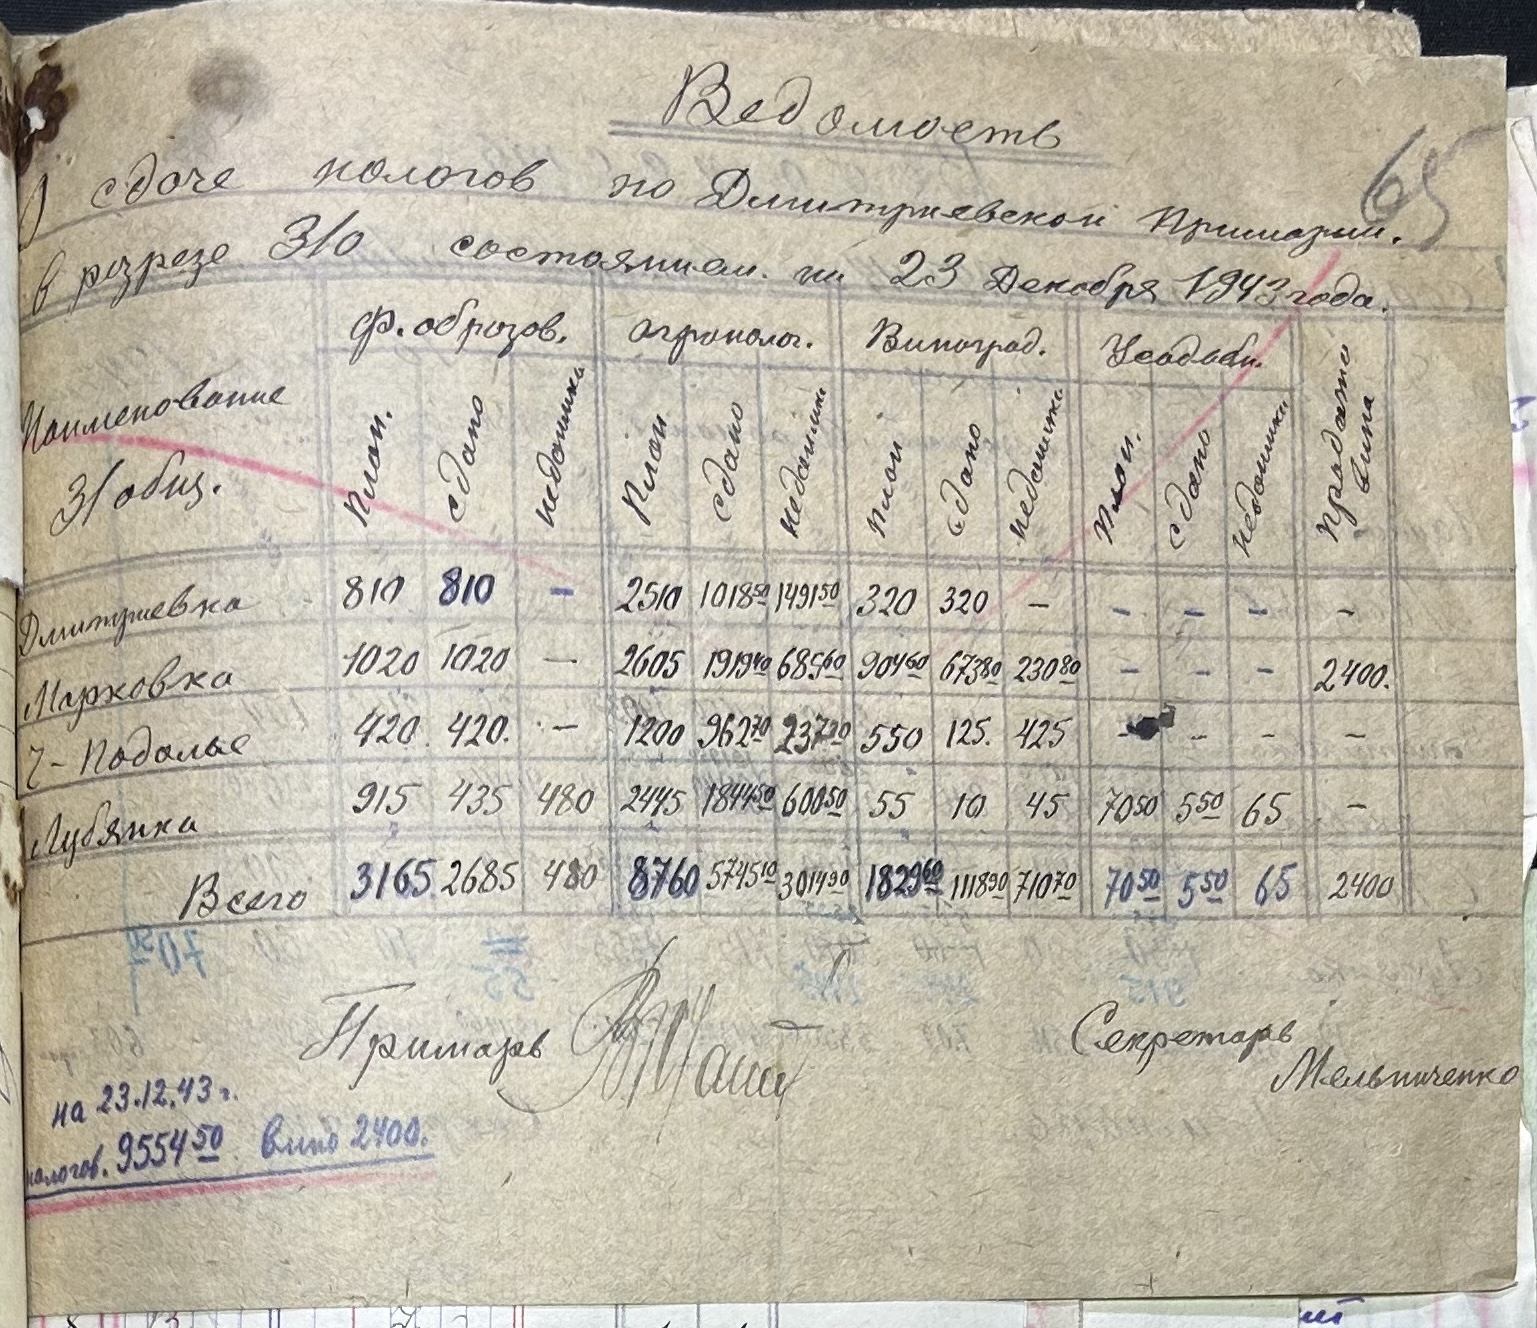 Ведомость
65
О сдаче нологов по Дмитриевской Примарии.
в розрезе З/О состоянием на 23 Декобря 1943 года.
Ноименование З/общ. Ф. оброзов. огронолог. Виноград. Усадобн. продажа вина
план. сдано недоимка план сдано недоимки план сдано недоимка план. сдано недоимки
Дмитриевка 810 810 - 2510 1018 50 1491 50 320 320 - - - - -
Марковка 1020 1020 - 2605 1919 40 685 60 904 60 673 80 230 80 - - - 2400.
Ч-Подолье 420 420. - 1200 962 70 237 30 550 125. 425 - - - -
Лубянка 915 435 480 2445 1844 50 600 50 55 10 45 70 50 5 50 65 -
Всего 3165 2685 480 8760 5745 10 3014 90 1829 60 1118 90 710 70 70 50 5 50 65 2400
Примарь
Секретарь
Мельниченко
на 23.12.43 г.
нологов. 9554 50 вино 2400.